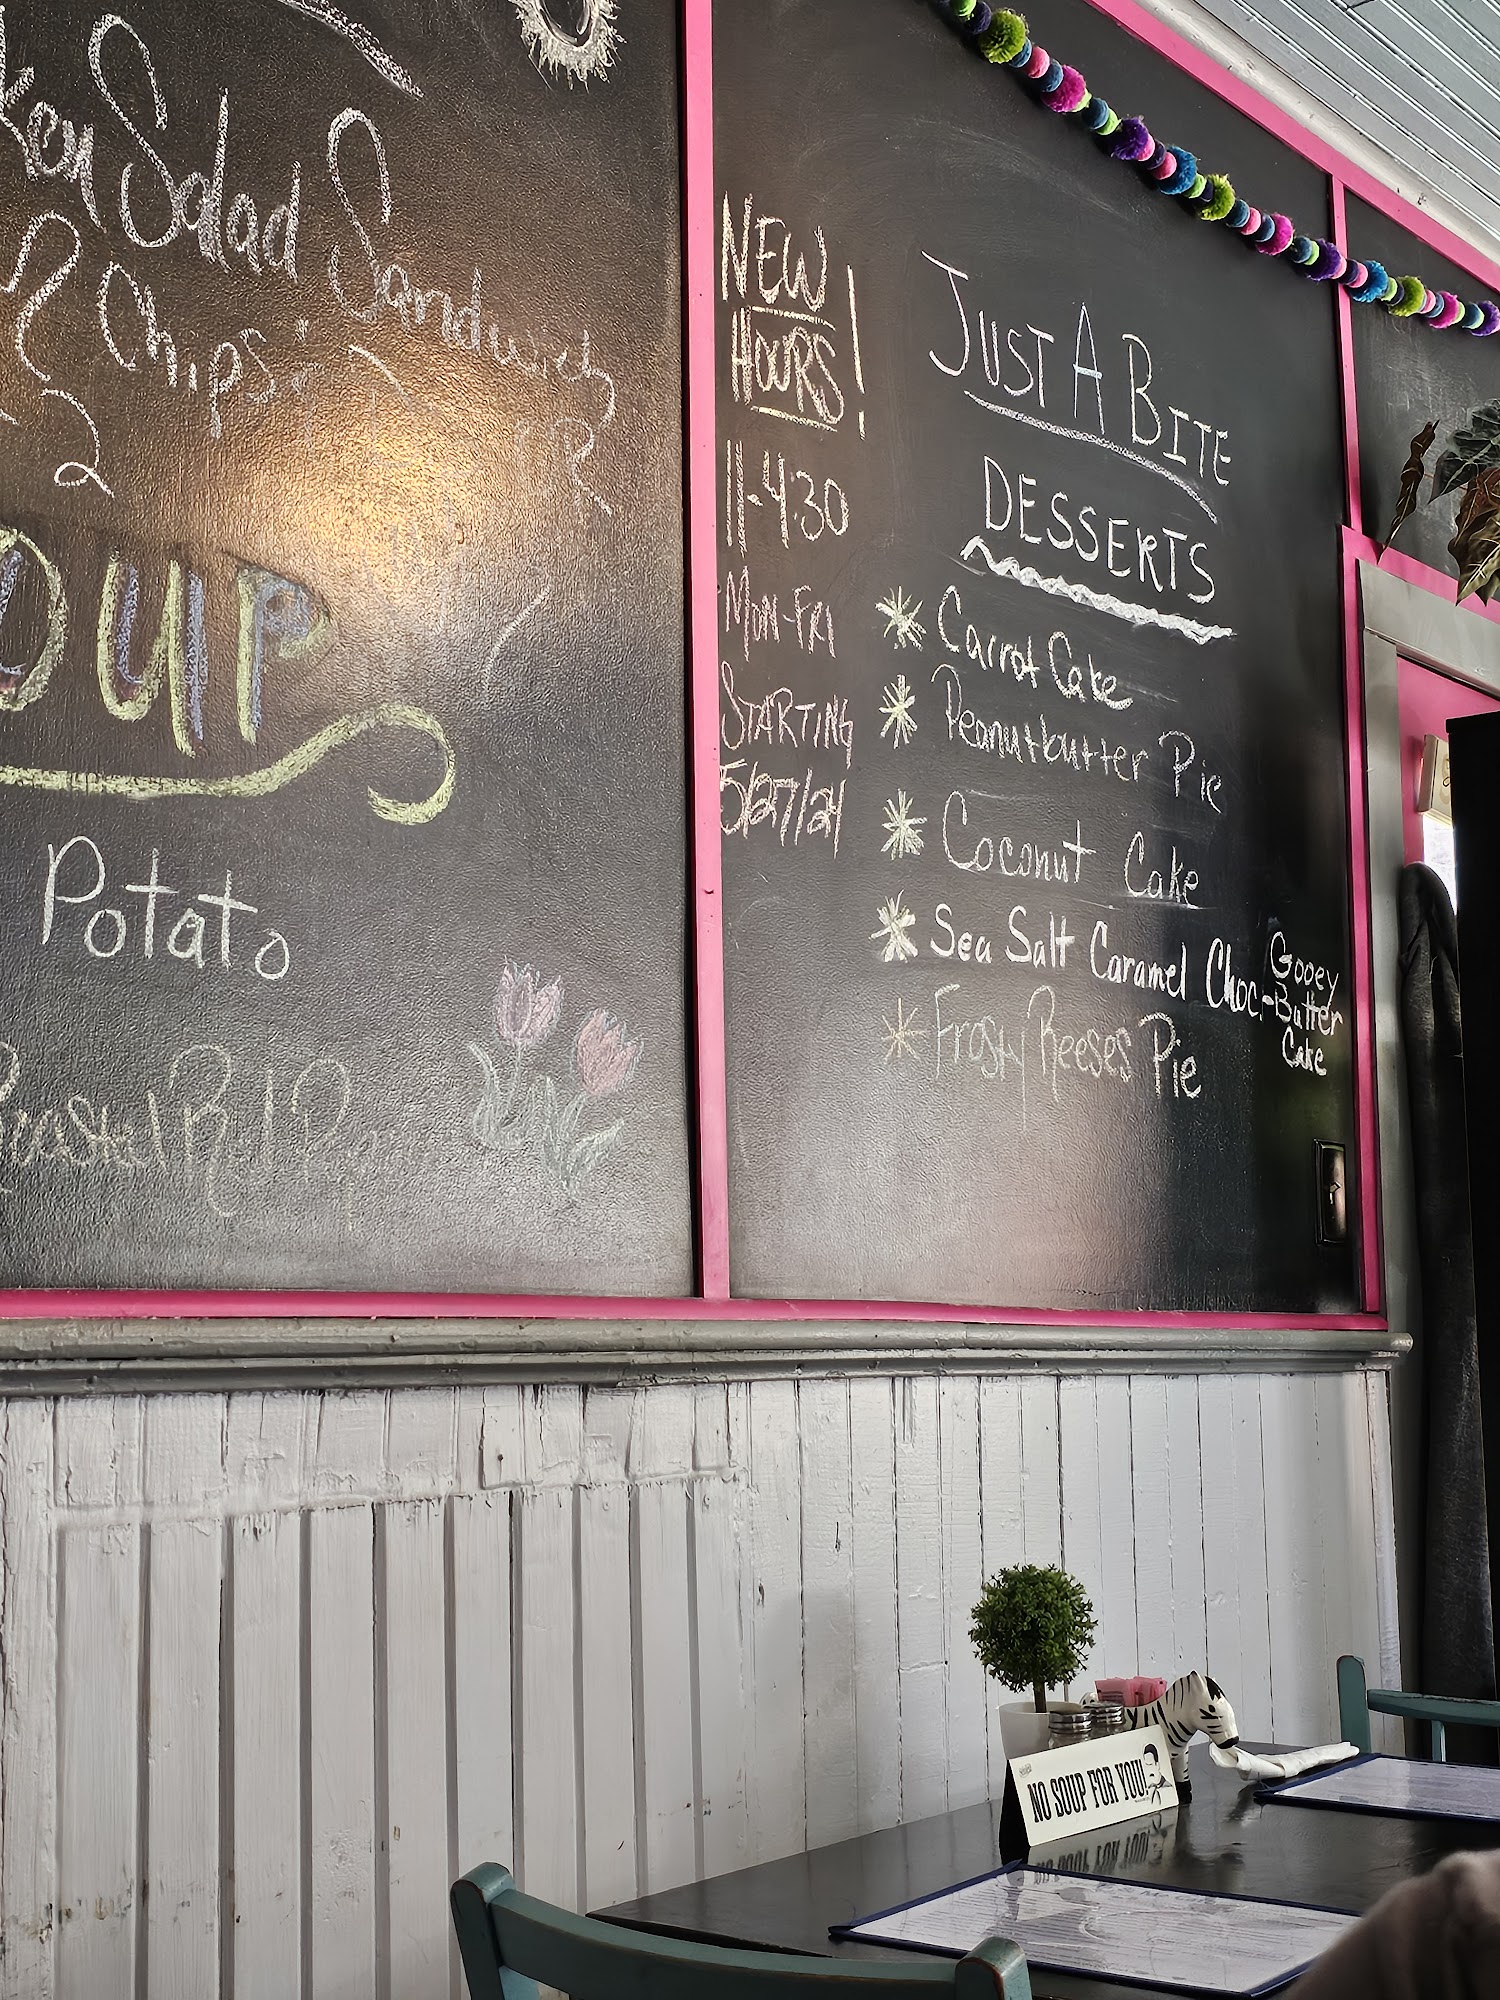 Salad Sandwich
Chips
Potato
NEW
HOURS!
11-4:30
MON-FRI
STARTING
5/27/24
JUST A BITE
DESSERTS
Carrot Cake
Peanutbutter Pie
Coconut Cake
Sea Salt Caramel Choc.
Gooey
-Butter
Cake
Frosty Reeses Pie
NO SOUP FOR YOU!